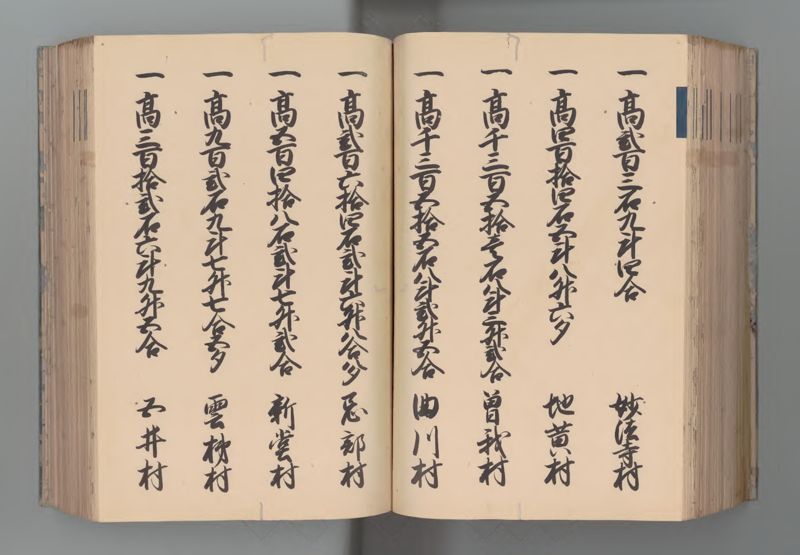 一高弐百三石九斗四合 妙法寺村
一高四百拾四石五斗八升六夕 地黄村
一高千三百五拾壱石八斗三升弐合 曽我村
一高千三百五拾五石八斗弐升五合 曲川村
一高弐百六拾四石弐斗六升八合夕 忌部村
一高五百四拾八石弐斗七升弐合 新堂村
一高九百弐石九斗七升七合五夕 雲梯村
一高三百拾弐石六斗九升五合 五井村